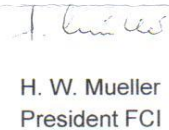 H. W. Mueller
President FCI